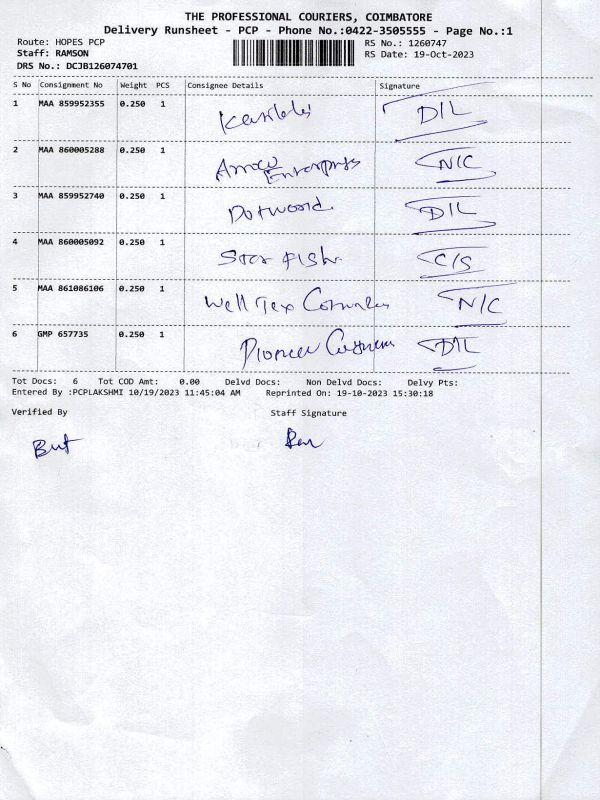 THE PROFESSIONAL COURIERS, COIMBATORE
Delivery Runsheet - PCP - Phone No.:0422-3505555 - Page No.:1
Route: HOPES PCP RS No.: 1260747
Staff: RAMSON RS Date: 19-Oct-2023
DRS No.: DCJB126074701
S No Consignment No Weight PCS Consignee Details Signature
1 MAA 859952355 0.250 1 D/L
2 MAA 860005288 0.250 1 Arrow Enterprises N/C
3 MAA 859952740 0.250 1 Dotwood D/L
4 MAA 860005092 0.250 1 Star Fish C/S
5 MAA 861086106 0.250 1 Well Tex N/C
6 GMP 657735 0.250 1 Pioneer D/L
Tot Docs: 6 Tot COD Amt: 0.00 Delvd Docs: Non Delvd Docs: Delvy Pts:
Entered By :PCPLAKSHMI 10/19/2023 11:45:04 AM Reprinted On: 19-10-2023 15:30:18
Verified By Staff Signature